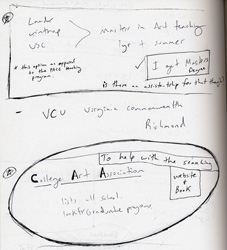 Lander
winthrop
USC
masters in Art teaching
1yr + summer
* this option as opposed
to the PACE teaching
program
✓ I get Masters
Degree
is there an assistantship for that though?
- VCU Virginia commonwealth
Richmond
To help with the searching
College Art Association
website
+
Book
lists all school.
program